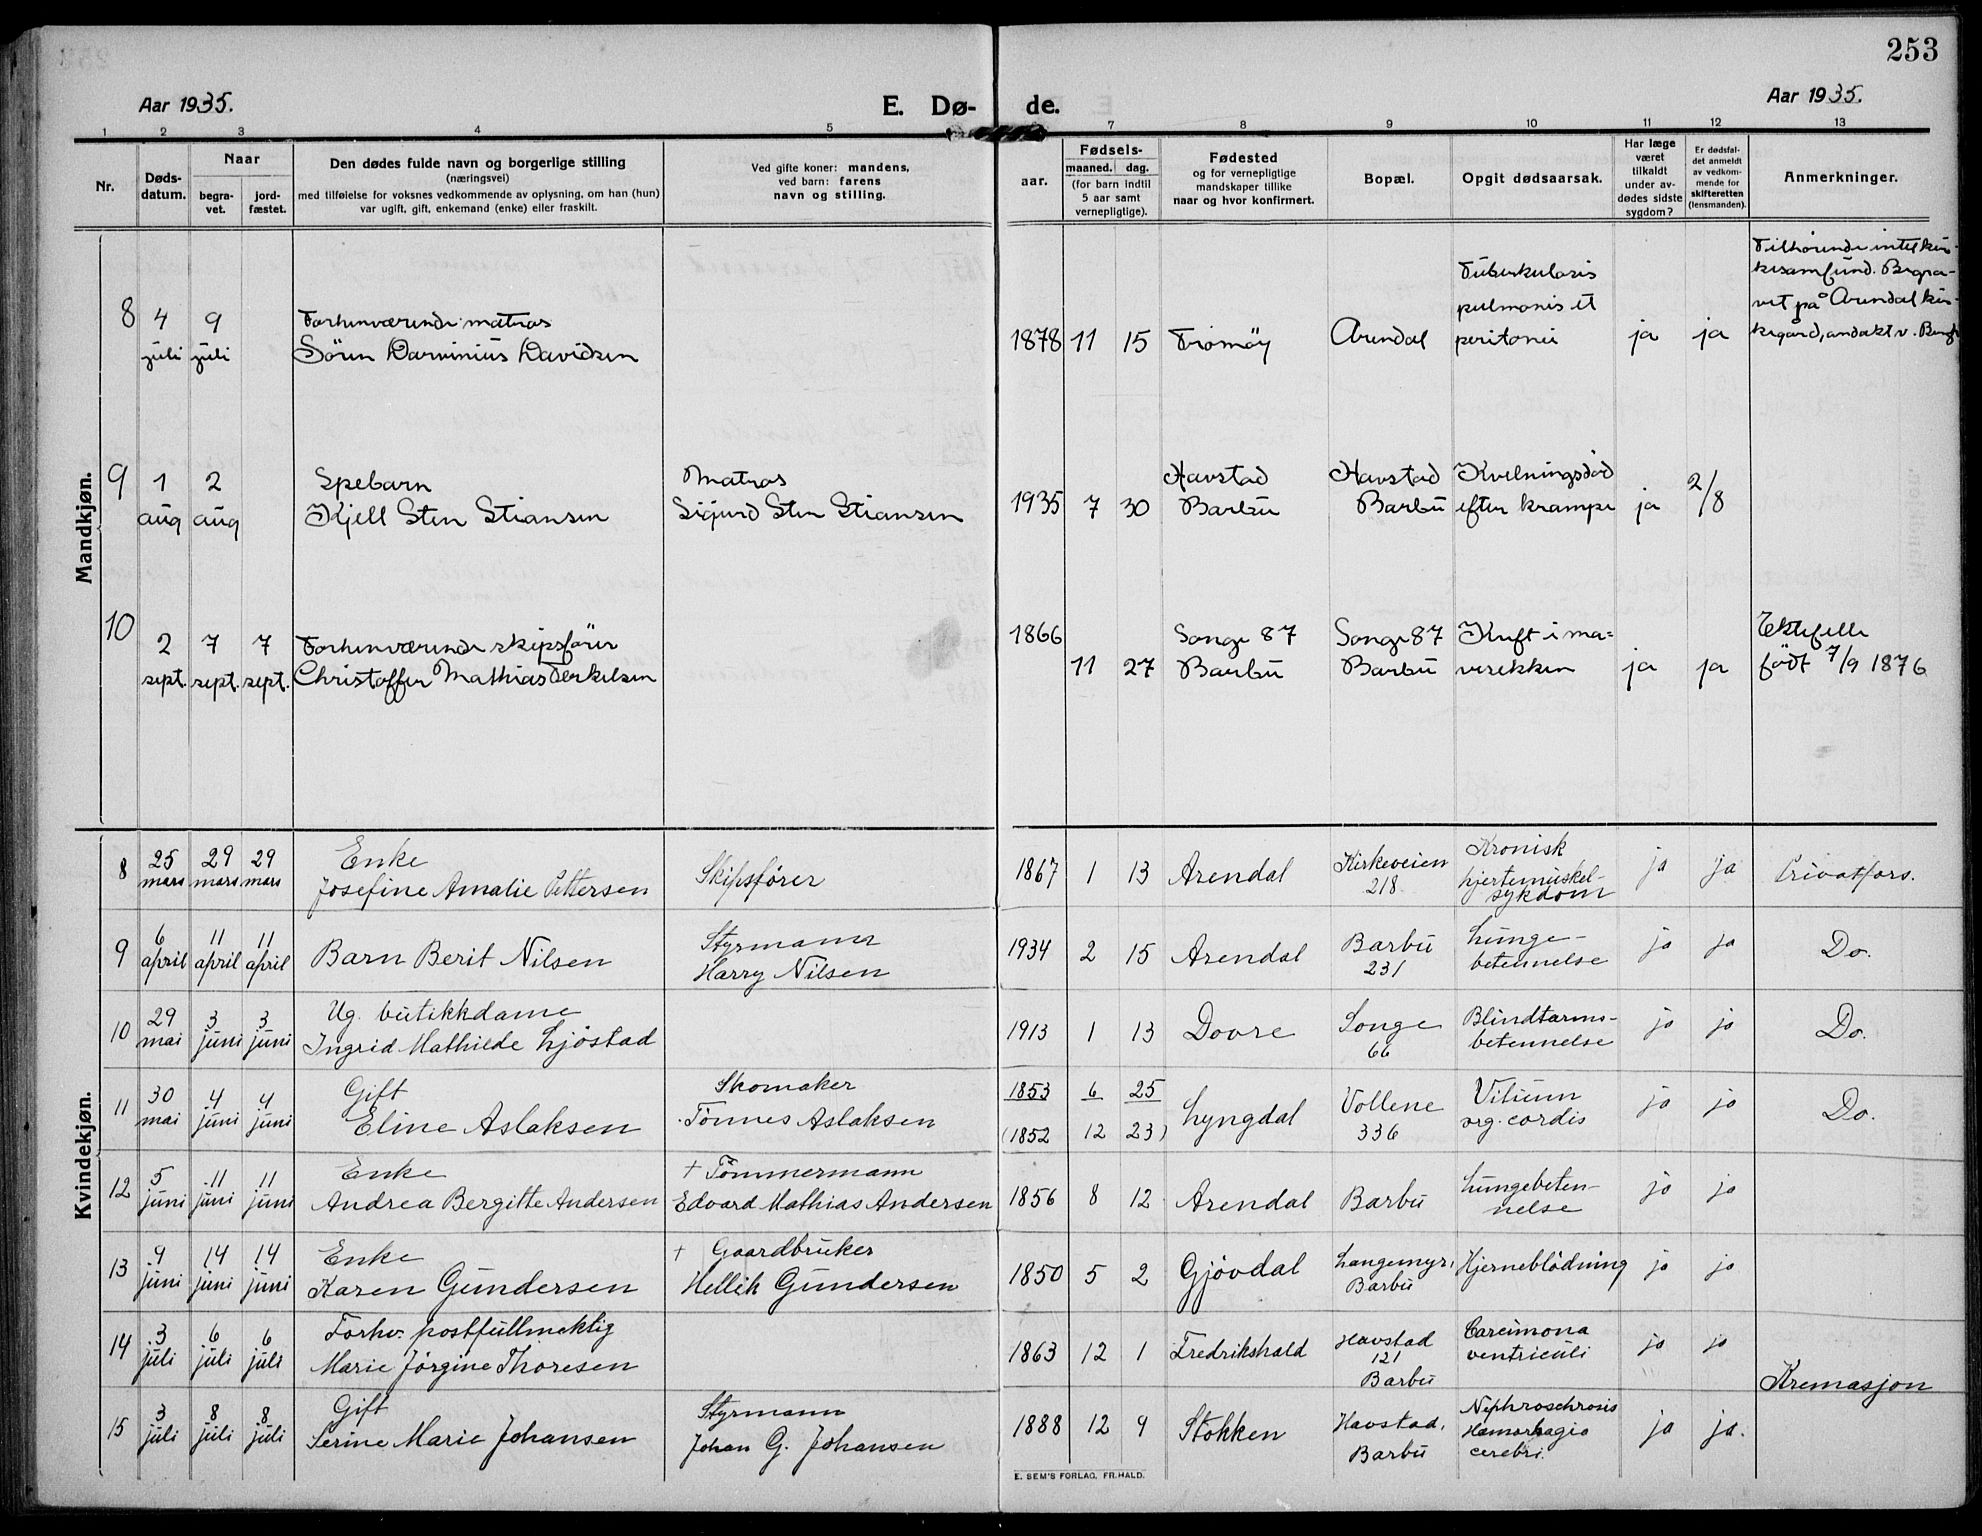 253
Aar 1935. E. Dø- de. Aar 1935.
1 2 3 4 5 7 8 9 10 11 12 13
Nr.
Døds-
datum.
Naar
begra-
vet.
jord-
fæstet.
Den dødes fulde navn og borgerlige stilling
(næringsvei)
med tilføielse for voksnes vedkommende av oplysning, om han (hun)
var ugift, gift, enkemand (enke) eller fraskilt.
Ved gifte koner: mandens,
ved barn: farens
navn og stilling.
aar.
Fødsels-
maaned. dag.
(for barn indtil
5 aar samt
vernepligtige).
Fødested
og for vernepligtige
mandskaper tillike
naar og hvor konfirmert.
Bopæl.
Opgit dødsaarsak.
Har læge
været
tilkaldt
under av-
dødes sidste
sygdom?
Er dødsfal-
det anmeldt
av vedkom-
mende for
skifteretten
(lensmanden).
Anmerkninger.
Mandkjøn.
8
4
juli
9
juli
Forhenværende matros
Sören Darvinius Davidsen
1878 11 15
Tromöy
Arendal
Tuberkulosis
pulmonis et
peritonei
ja
ja
Tilhørende intet kir-
kesamfund. Begra-
vet på Arendal kir-
kegård, andakt v.
9
1
aug
2
aug
Spebarn
Kjell Sten Stiansen
Matros
Sigurd Sten Stiansen
1935 7 30
Havstad
Barbu
Havstad
Barbu
Kvelningsdöd
efter krampe
ja
2/8
10
2
sept.
7
sept.
7
sept.
Forhenværende skipsförer
Christoffer Mathias Terkelsen
1866
11 27
Songe 87
Barbu
Songe 87
Barbu
Kreft i ma=
vesekken
ja
ja
Ektefelle
født 7/9 1876
Kvindekjøn.
8
25
mars
29
mars
29
mars
Enke
Josefine Amalie Pettersen
Skipsfører
1867 1 13
Arendal
Kirkeveien
218
Kronisk
hjertemuskel-
sykdom
ja
ja
Privatfors.
9
6
april
11
april
11
april
Barn Berit Nilsen
Styrmann
Harry Nilsen
1934 2 15
Arendal
Barbu
231
Lunge-
betennelse
ja
ja
Do.
10
29
mai
3
juni
3
juni
Ug. butikkdame
Ingrid Mathilde Ljöstad
1913 1 13
Dovre
Songe
66
Blindtarms-
betennelse
ja
ja
Do.
11
30
mai
4
juni
4
juni
Gift
Eline Aslaksen
Skomaker
Tönnes Aslaksen
1853 6 25
(1852 12 23)
Lyngdal
Vollene
336
Vitium
org. cordis
ja
ja
Do.
12
5
juni
11
juni
11
juni
Enke
Andrea Bergitte Andersen
+ Tömmermann
Edvard Mathias Andersen
1856 8 12
Arendal
Barbu
Lungebeten-
nelse
ja
ja
13
9
juni
14
juni
14
juni
Enke
Karen Gundersen
+ Gaardbruker
Hellik Gundersen
1850 5 2
Gjövdal
Langemyr,
Barbu
Hjerneblödning
ja
ja
14
3
juli
6
juli
6
juli
Forhv. postfullmektig
Marie Jörgine Thoresen
1863 12 1
Fredrikshald
Havstad
121
Barbu
Carcimona
ventriculi
ja
ja
15
3
juli
8
juli
8
juli
Gift
Serine Marie Johansen
Styrmann
Johan G. Johansen
1888 12 9
Stokken
Havstad,
Barbu
Nephroschrosis
Hæmorhagia
cerebri.
ja
ja.
Kremasjon
E. SEM'S FORLAG, FR.HALD.